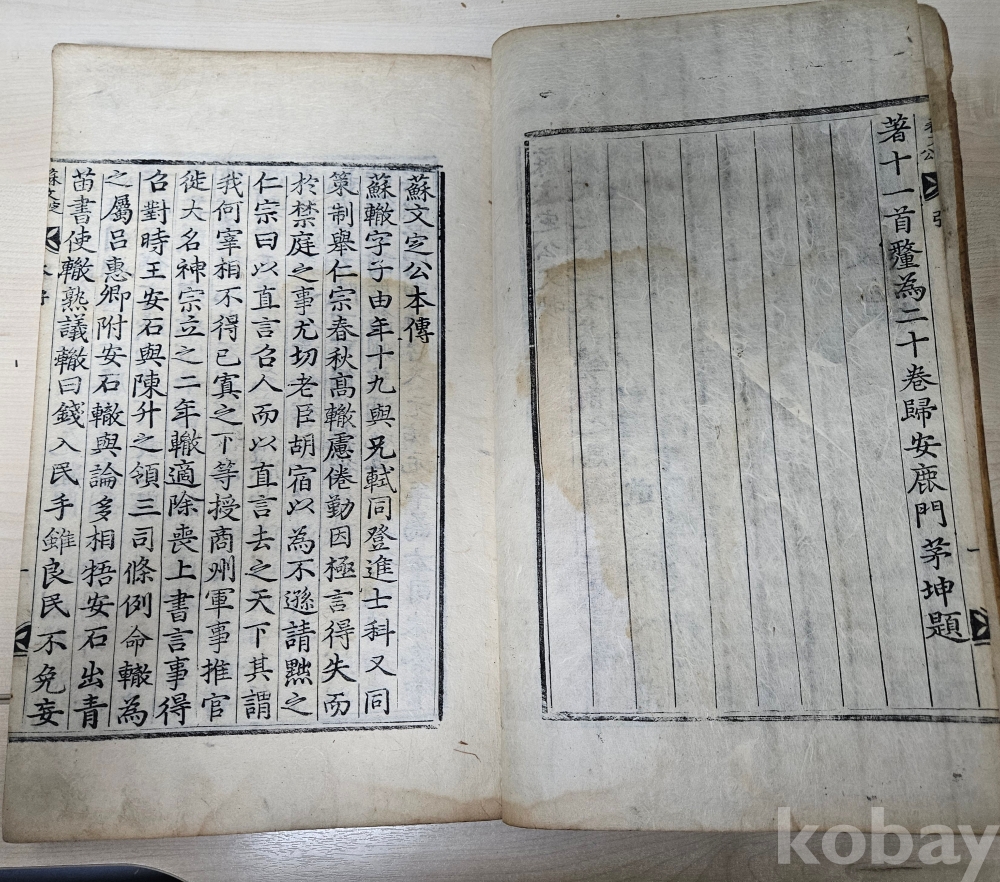 著十一首釐為二十卷歸安鹿門茅坤題
引
一
蘇文定公本傳
蘇轍字子由年十九與兄軾同登進士科又同
策制舉仁宗春秋高轍慮倦勤因極言得失而
於禁庭之事尤切老臣胡宿以為不遜請黜之
仁宗曰以直言召人而以直言去之天下其謂
我何宰相不得已寘之下等授商州軍事推官
徙大名神宗立之二年轍適除喪上書言事得
召對時王安石與陳升之領三司條例命轍為
之屬呂惠卿附安石轍與論多相牾安石出青
苗書使轍熟議轍曰錢入民手雖良民不免妄
蘇文定
一
kobay